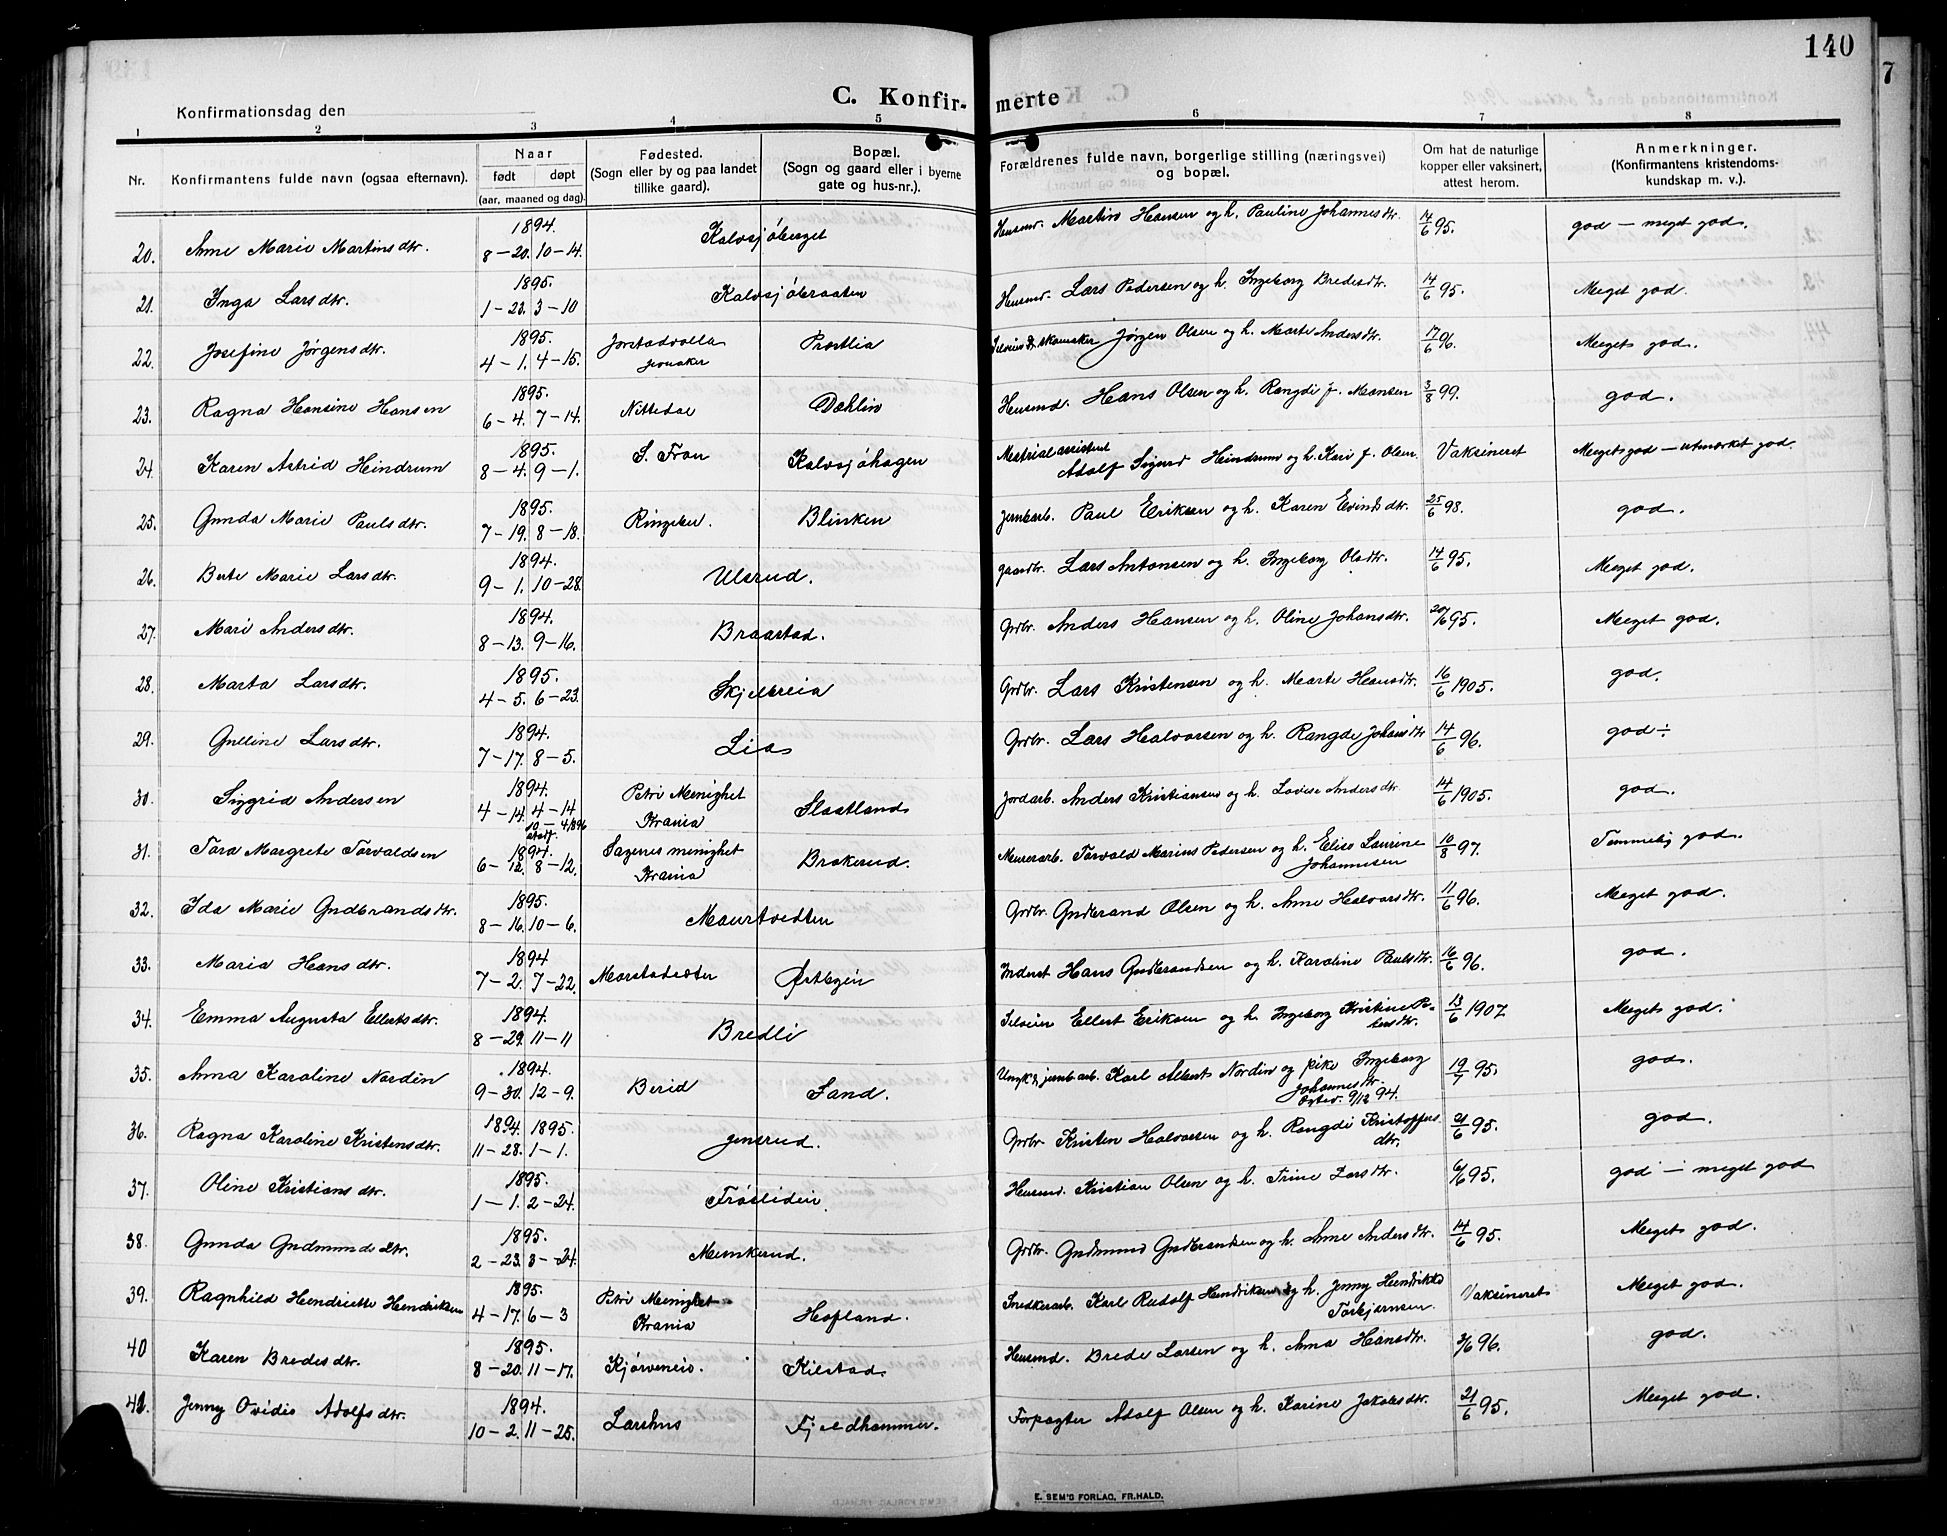 140
7
C. Konfirmerte
Konfirmationsdag den
1 2 3 4 5 6 7 8
Nr. Konfirmantens fulde navn (ogsaa efternavn). Naar født døpt (aar, maaned og dag). Fødested. (Sogn eller by og paa landet tillike gaard). Bopæl. (Sogn og gaard eller i byerne gate og hus-nr.). Forældrenes fulde navn, borgerlige stilling (næringsvei) og bopæl. Om hat de naturlige kopper eller vaksinert, attest herom. Anmerkninger. (Konfirmantens kristendomskundskap m. v.).
20. Anne Marie Martinsdtr. 1894. 8–20. 10–14. Kalvsjöberget Husmd. Martin Hansen og h. Pauline Johannesdtr. 14/6 95. god – meget god.
21. Inga Larsdtr. 1895. 1–23. 3–10 Kalvsjöbraaten Husmd. Lars Pedersen og h. Ingeborg Bredesdtr. 14/6 95. Meget god.
22. Josefine Jörgensdtr. 1895. 4–1. 4–15. Jevnaker Prestlia Jörgen Olsen og h. Marte Andersdtr. 17/6 96. Meget god.
23. Ragna Hansine Hansen 1895. 6–4. 7–14. Nittedal Dæhlin Husmd. Hans Olsen og h. Rangdi f. Monsen 3/8 99. god.
24. Karen Astrid Heindrum 1895. 8–4. 9–1. S. Fron Kalvsjöhagen Adolf Sigurd Heindrum og h. Kari f. Olsen Vaksineret Meget god – utmerket god.
25. Gunda Marie Paulsdtr. 1895. 7–19. 8–18. Ringebu. Blinken Jernbarb. Paul Eriksen og h. Karen Evindsdtr. 25/6 98. god.
26. Berte Marie Larsdtr. 1894. 9–1. 10–28. Ulsrud. Gaardbr. Lars Antonsen og h. Ingeborg Olsdtr. 14/6 95. Meget god.
27. Mari Andersdtr. 1894. 8–13. 9–16. Braastad. Grdbr. Anders Hansen og h. Oline Johansdtr. 20/6 95. Meget god.
28. Marta Larsdtr. 1895. 4–5. 6–23. Skjelbreia Grdbr. Lars Kristensen og h. Marte Hansdtr. 16/6 1905. god.
29. Gulline Larsdtr. 1894. 7–17. 8–5. Lia Grdbr. Lars Halvorsen og h. Rangdi Johansdtr 14/6 96. god ÷
30. Sigrid Andersen 1894. 4–14. 4–14 Petri Menighet Krania Slaatland Jordarb. Anders Kristiansen og h. Lovise Andersdtr. 14/6 1905. god.
31. Tora Margrete Torvaldsen 1894. 6–12. 8–12. Sagenes menighet Krania Brakerud. Murerarb. Torvald Marius Pedersen og h. Elise Laurine Johannesen 10/8 97. Temmelig god.
32. Ida Marie Gudbrandsdtr. 1895. 8–16. 10–6. Maurtvedten Grdbr. Gudbrand Olsen og h. Anne Halvorsdtr. 11/6 96. Meget god.
33. Maria Hansdtr. 1894 7–2. 7–22. Morstadsæter Østbyen Inderst Hans Gudbrandsen og h. Karoline Paulsdtr. 16/6 96. god.
34. Emma Augusta Ellertsdtr. 1894. 8–29. 11–11 Bredli Selveier Ellert Eriksen og h. Ingeborg Kristine Petersdtr. 13/6 1907 Meget god.
35. Anna Karoline Nordén 1894. 9–30. 12–9. Berid Sand. Ungk. & jernb.arb. Karl Albert Nordin og pike Ingeborg Johannesdtr. 9/12 94. 19/7 95. god.
36. Ragna Karoline Kristensdtr. 1894. 1895. 11–28. 1–1. Jensrud. Grdbr. Kristen Halvorsen og h. Rangdi Kristoffersdtr. 21/6 95. god.
37. Oline Kristiansdtr. 1895. 1–1. 2–24. Fröslideie. Husmd. Kristian Olsen og h. Trine Larsdtr. 6/6 95. god – meget god
38. Gunda Gudmundsdtr. 1895. 2–23. 3–24. Munkerud. Grdbr. Gudmund Gudbrandsen og h. Anne Andersdtr. 14/6 95. Meget god.
39. Ragnhild Hendriette Hendriksen 1895. 4–17. 6–3 Petri Menighet Krania Hofland. Snedkerarb. Karl Rudolf Hendriksen og h. Jenny Hendrikke Torbjørnsen. Vaksineret Meget god.
40 Karen Bredesdtr. 1895. 8–20. 11–17. Kjörveneie. Kilstad Husmd. Brede Larsen og h. Anna Hansdtr. 96. god.
41. Jenny Ovidia Adolfsdtr. 1894. 10–2. 11–25. Larshus Fjeldhammer. Forpagter Adolf Olsen og h. Karine Jakobsdtr. 21/6 95. Meget god.
E. SEM'S FORLAG, FR.HALD.